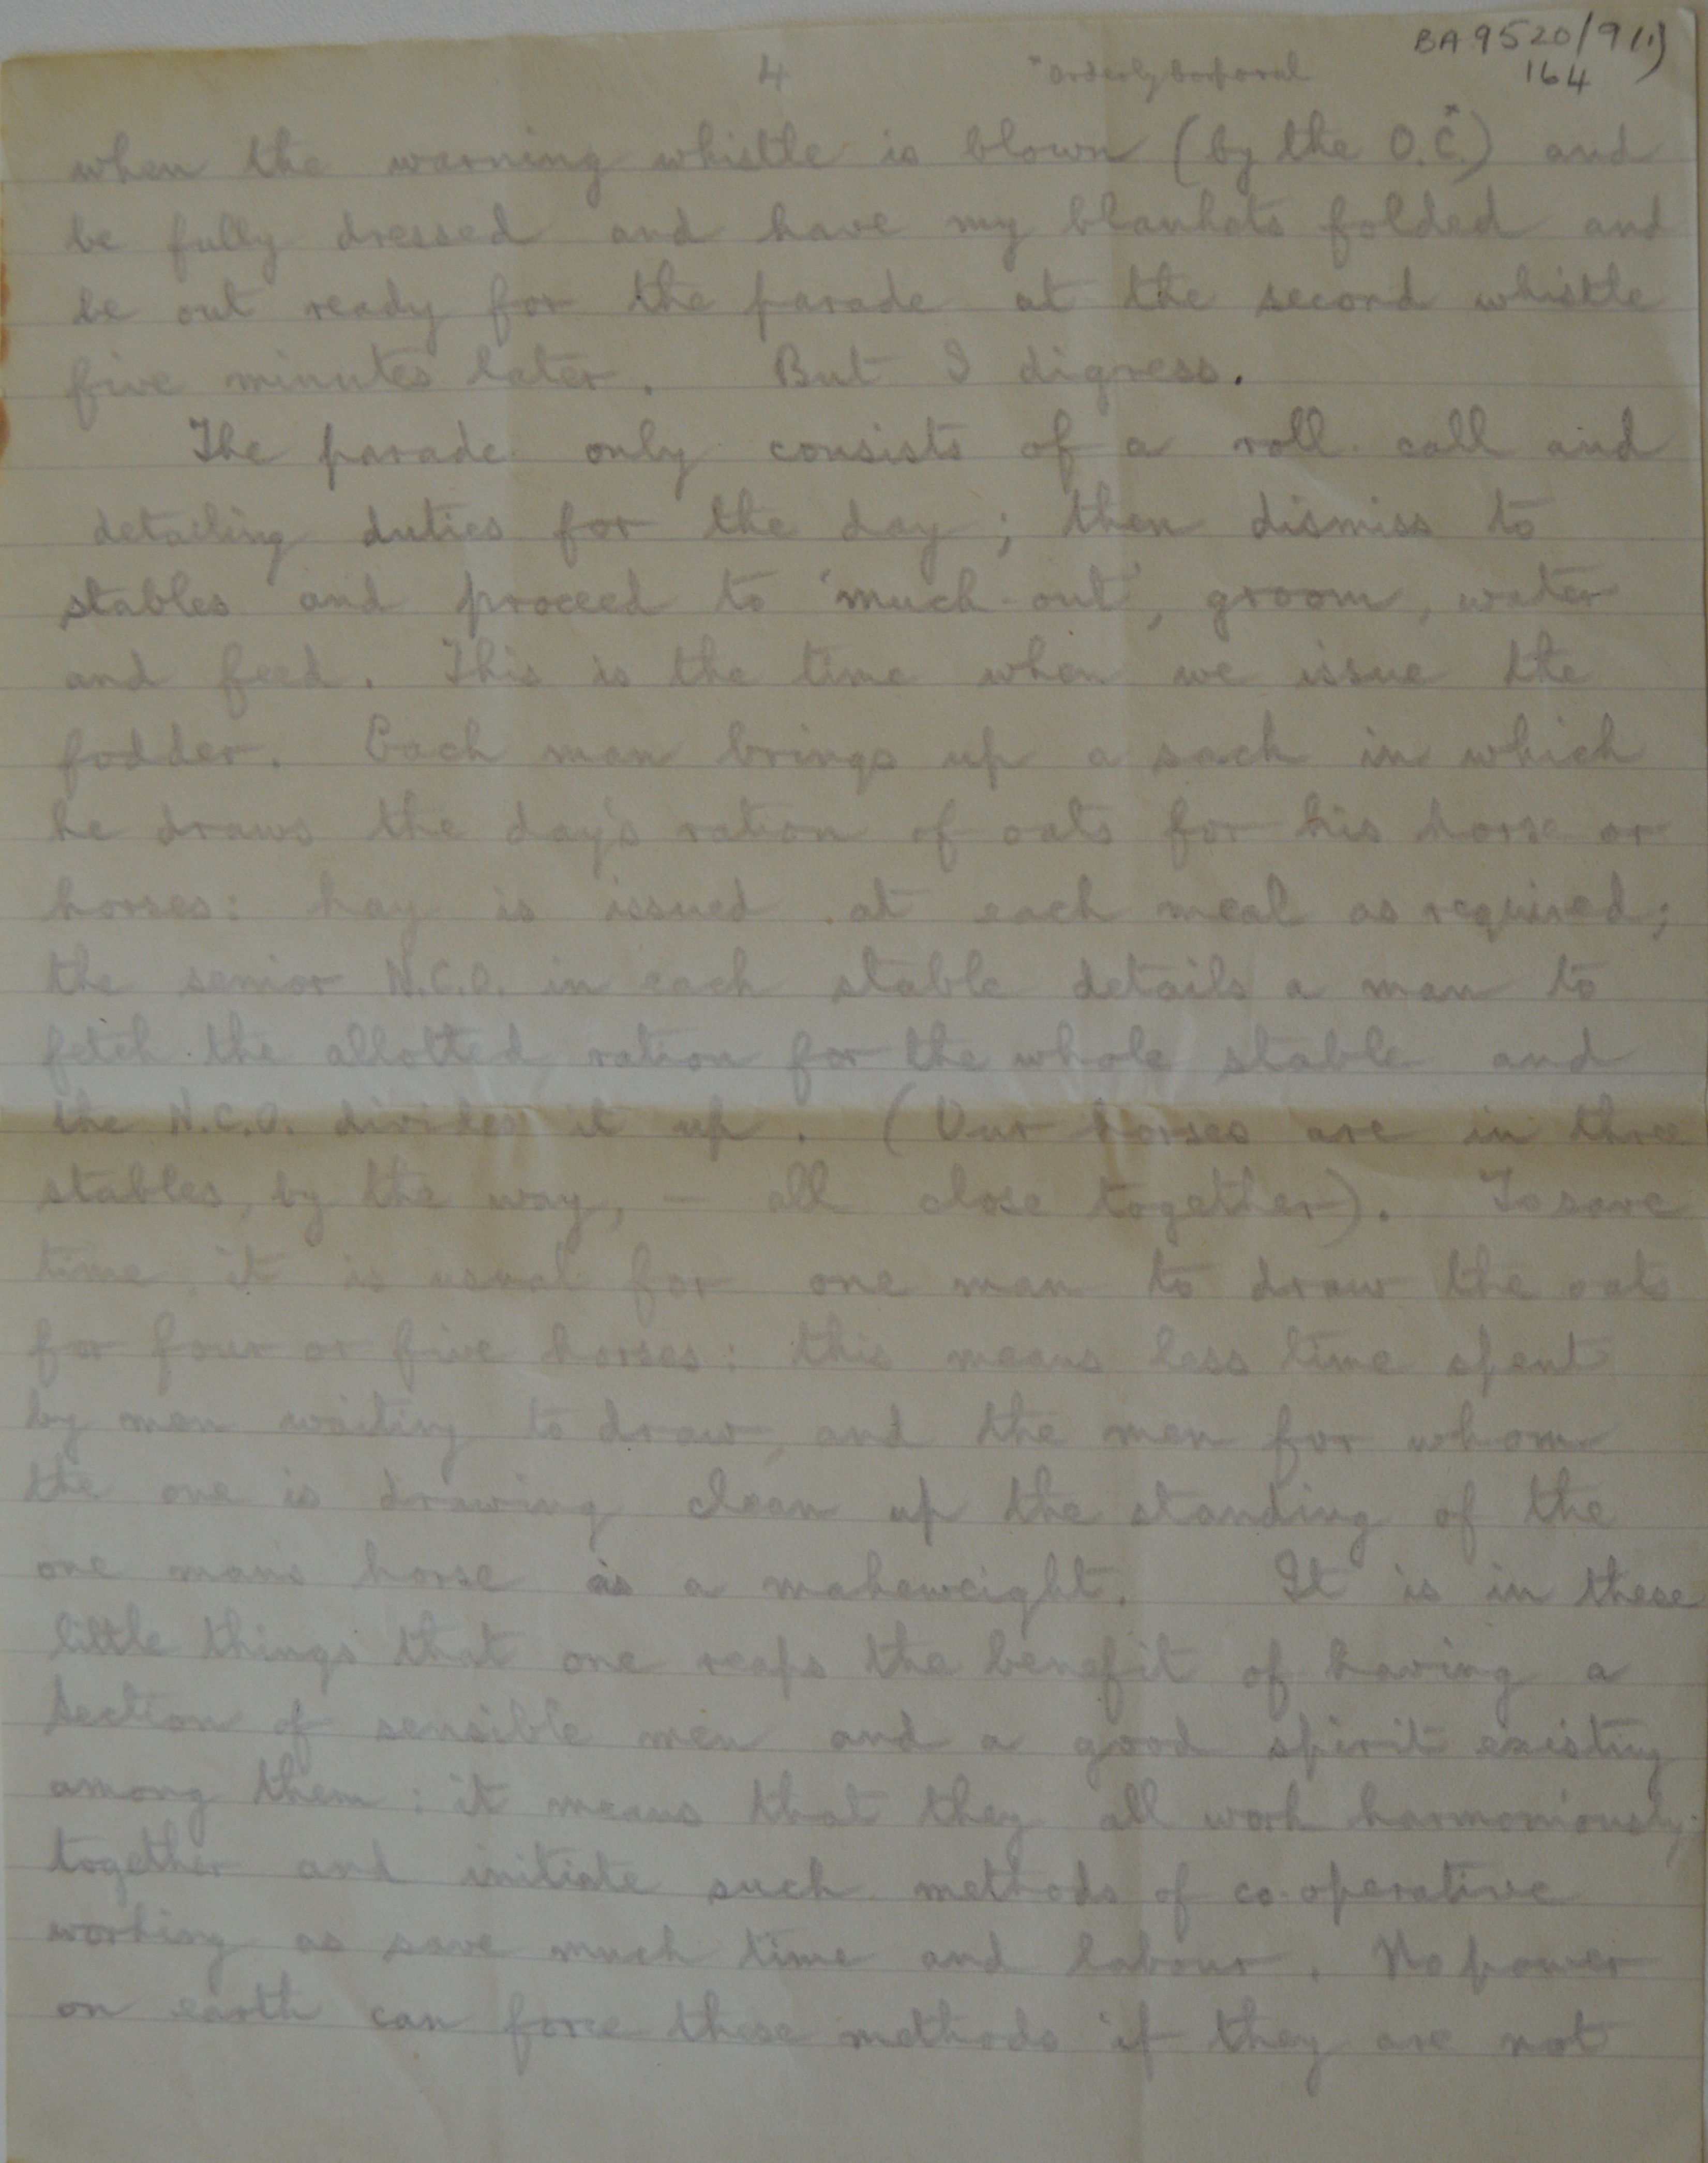 BA 9520/9(1)
164
4
*Orderly Corporal
when the warning whistle is blown (by the O.C.*) and
be fully dressed and have my blankets folded and
be out ready for the parade at the second whistle
five minutes later. But I digress.
The parade only consists of a roll call and
detailing duties for the day; then dismiss to
stables and proceed to 'much-out', groom, water
and feed. This is the time when we issue the
fodder. Each man brings up a sack in which
he draws the day's ration of oats for his horse or
horses: hay is issued at each meal as required;
the senior N.C.O. in each stable details a man to
fetch the allotted ration for the whole stable and
the N.C.O. divides it up. (Our horses are in three
stables, by the way, — all close together). To save
time it is usual for one man to draw the oats
for four or five horses: this means less time spent
by men waiting to draw, and the men for whom
the one is drawing clean up the standing of the
one man's horse as a makeweight. It is in these
little things that one reaps the benefit of having a
section of sensible men and a good spirit existing
among them: it means that they all work harmoniously
together and initiate such methods of co-operative
working as save much time and labour. No power
on earth can force these methods if they are not